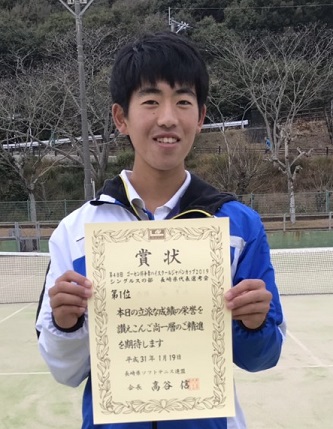 賞状
シングルスの部 長崎県代表選考会
第1位
本日の立派な成績の栄誉を
讃えこんご尚一層のご精進
を期待します
平成31年1月19日
長崎県ソフトテニス連盟
会長 高谷 信